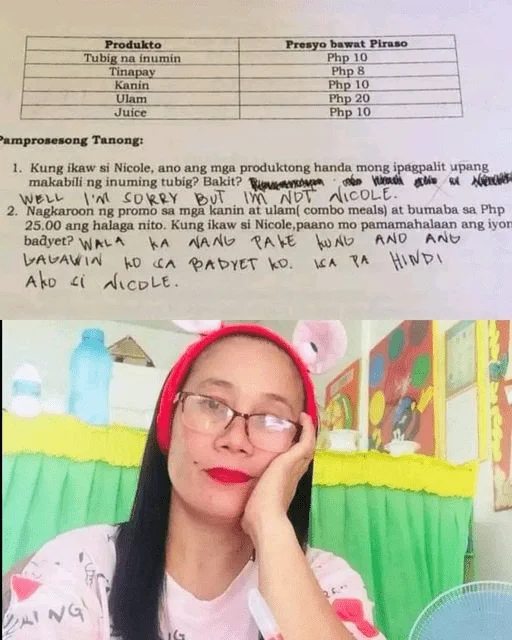 Produkto Presyo bawat Piraso
Tubig na inumin Php 10
Tinapay Php 8
Kanin Php 10
Ulam Php 20
Juice Php 10
Pamprosesong Tanong:
1. Kung ikaw si Nicole, ano ang mga produktong handa mong ipagpalit upang
makabili ng inuming tubig? Bakit?
WELL I'M SORRY BUT I'M NOT NICOLE.
2. Nagkaroon ng promo sa mga kanin at ulam( combo meals) at bumaba sa Php
25.00 ang halaga nito. Kung ikaw si Nicole,paano mo pamamahalaan ang iyon
badyet? WALA KA NANG PAKE KUNG ANO ANG
GAGAWIN KO SA BADYET KO. ISA PA HINDI
AKO SI NICOLE.